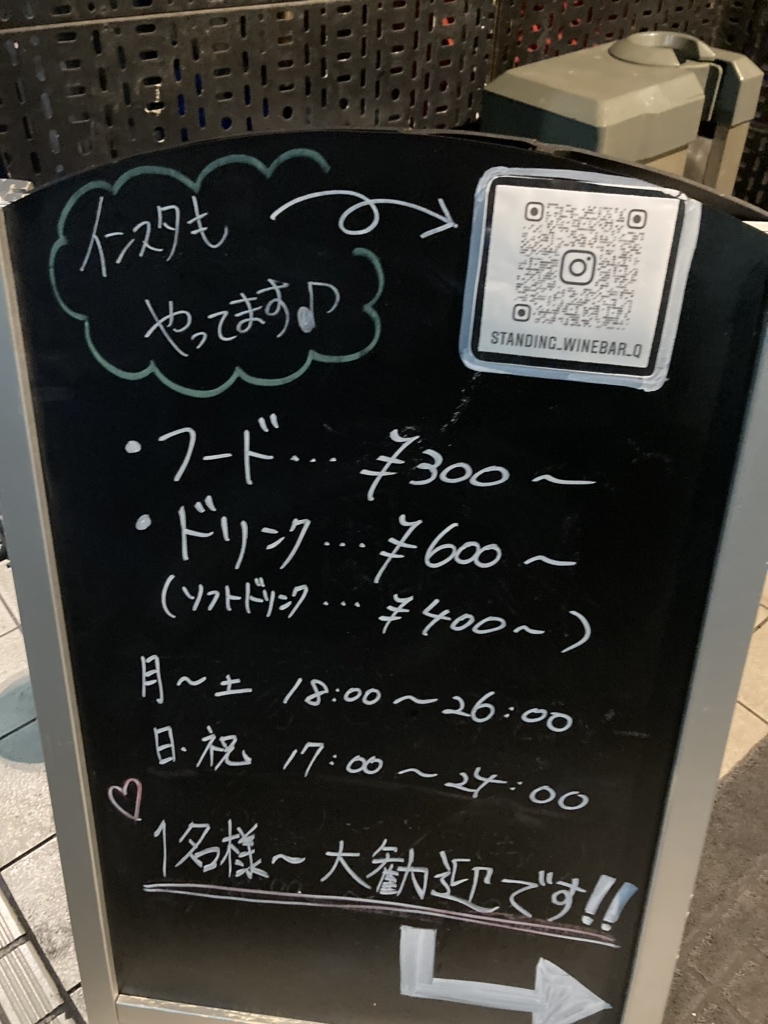 インスタも
やってます♪
STANDING_WINEBAR_Q
・フード… ¥300～
・ドリンク… ¥600～
(ソフトドリンク… ¥400～)
月～土 18:00～26:00
日・祝 17:00～24:00
♡
1名様～大歓迎です!!